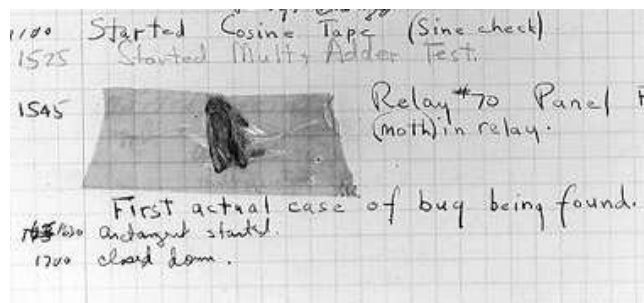 1100 Started Cosine Tape (Sine check)
1525 Started Mult, Adder Test.
1545 Relay #70 Panel F
(moth) in relay.
First actual case of bug being found.
1630 antangent started.
1700 closed down.